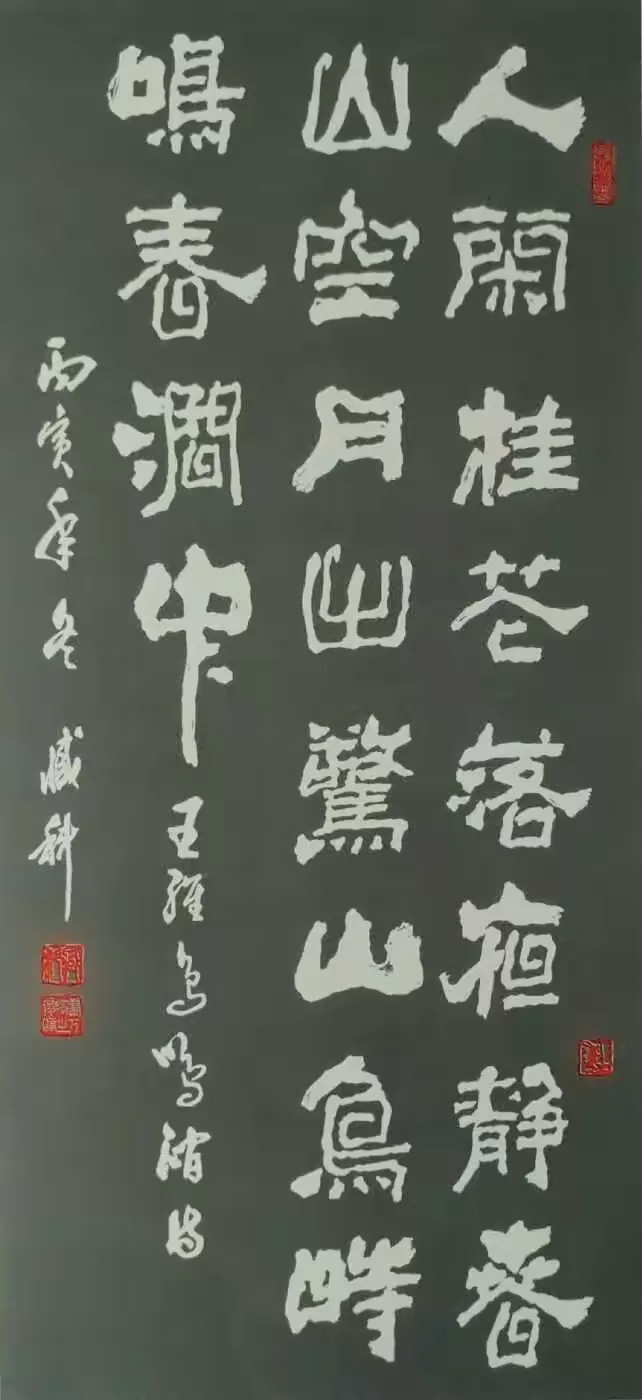 人閑桂花落夜静春
山空月出驚山鳥時
鳴春澗中 王維鳥鳴澗詩
丙寅年冬 臧科